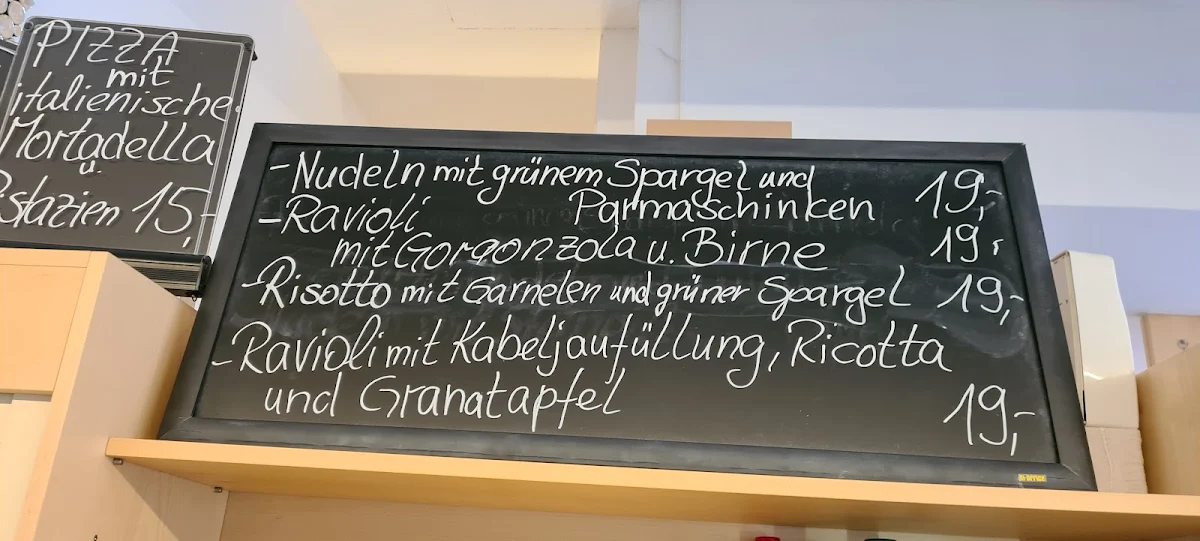 PIZZA
mit
italienische
Mortadella
u.
Pistazien 15,-
- Nudeln mit grünem Spargel und
Parmaschinken 19,-
- Ravioli
mit Gorgonzola u. Birne 19,-
- Risotto mit Garnelen und grüner Spargel 19,-
- Ravioli mit Kabeljaufüllung, Ricotta
und Granatapfel 19,-